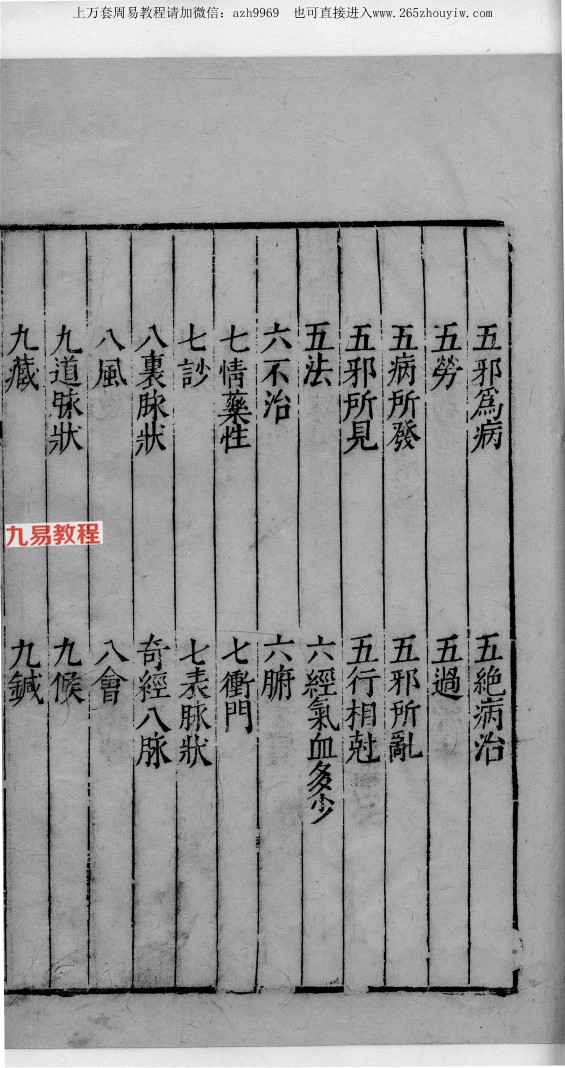 上万套周易教程请加微信：azh9969　也可直接进入www.265zhouyiw.com
五邪爲病　五絶病治
五勞　五過
五病所發　五邪所亂
五邪所見　五行相尅
五法　六經氣血多少
六不治　六腑
七情藥性　七衝門
七診　七表脉狀
八裏脉狀　奇經八脉
八風　八會
九道脉狀　九候
九藏　九鍼
九易教程